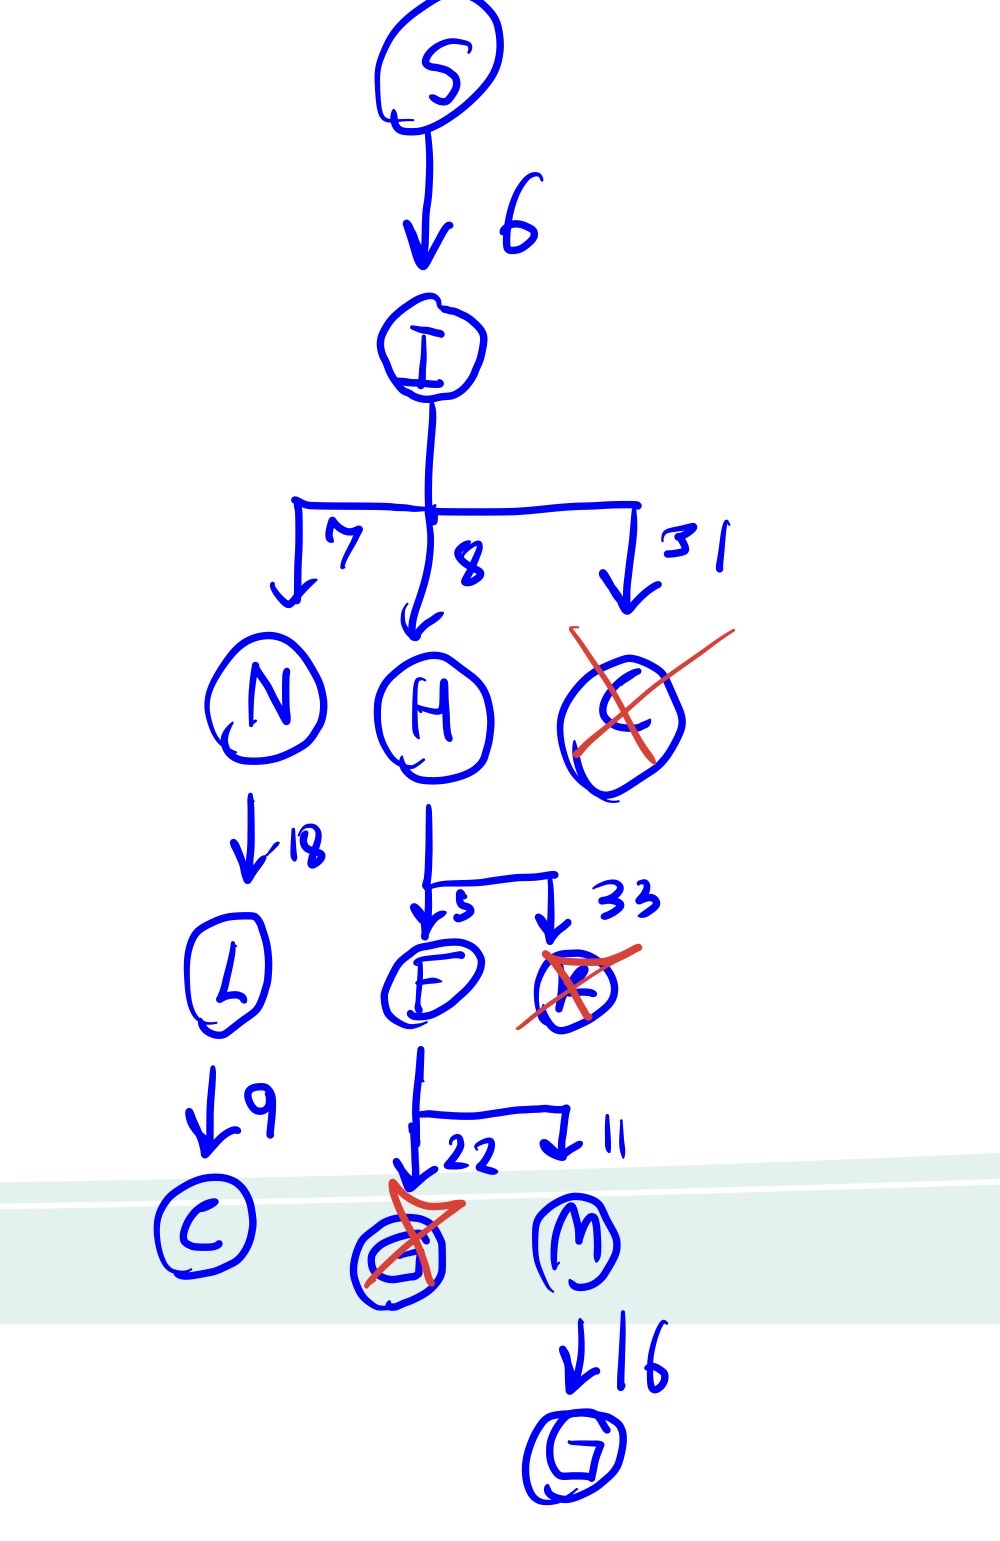 S
6
I
7 8 31
N H C
18 5 33
L F
9 22 11
C G M
16
G